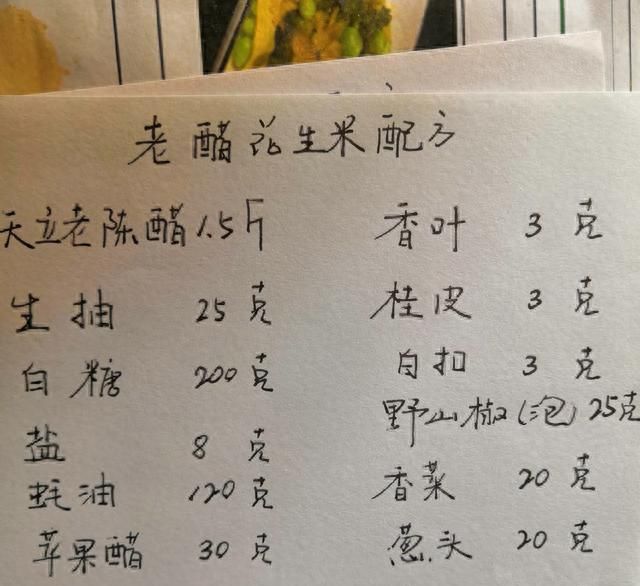 老醋花生米配方
天立老陈醋 1.5斤
生抽 25克
白糖 200克
盐 8克
蚝油 120克
苹果醋 30克
香叶 3克
桂皮 3克
白扣 3克
野山椒(泡) 25克
香菜 20克
葱头 20克